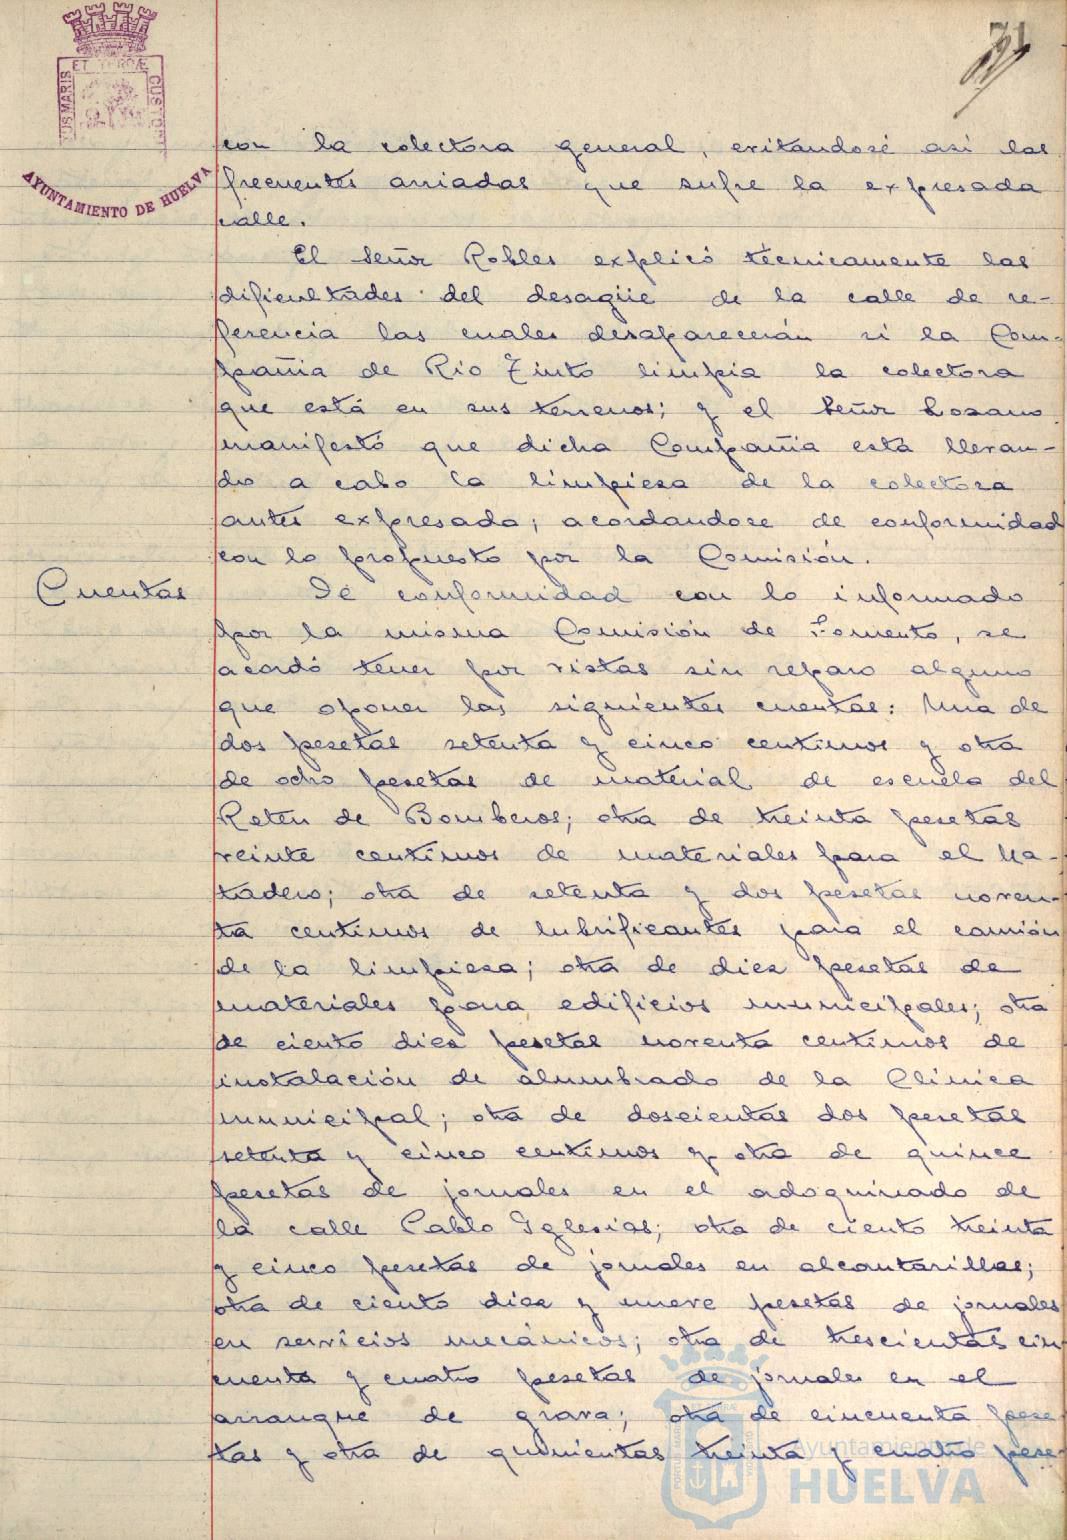 71
ET TERRÆ
US MARIS
CUSTO
AYUNTAMIENTO DE HUELVA
con la colectora general, evitandose asi las
frecuentes arriadas que sufre la expresada
calle.
El Señor Robles explicó técnicamente las
dificultades del desagüe de la calle de re-
ferencia las cuales desaparecerán si la Com-
pañia de Rio Tinto limpia la colectora
que está en sus terrenos; y el Señor Lozano
manifestó que dicha Compañia esta llevan-
do a cabo la limpieza de la colectora
antes expresada; acordandose de conformidad
con lo propuesto por la Comisión.
Cuentas
De conformidad con lo informado
por la misma Comisión de Fomento, se
acordó tener por vistas sin reparo alguno
que oponer las siguientes cuentas: Una de
dos pesetas setenta y cinco centimos y otra
de ocho pesetas de material de escuela del
Reten de Bomberos; otra de treinta pesetas
veinte centimos de materiales para el Ma-
tadero; otra de setenta y dos pesetas noven-
ta centimos de lubrificantes para el camión
de la limpieza; otra de diez pesetas de
materiales para edificios municipales; otra
de ciento diez pesetas noventa centimos de
instalación de alumbrado de la Clinica
municipal; otra de doscientas dos pesetas
setenta y cinco centimos y otra de quince
pesetas de jornales en el adoquinado de
la calle Pablo Iglesias; otra de ciento treinta
y cinco pesetas de jornales en alcantarillas;
otra de ciento diez y nueve pesetas de jornales
en servicios mecánicos; otra de trescientas cin
cuenta y cuatro pesetas de jornales en el
arranque de grava; otra de cincuenta pese
tas y otra de quinientas treinta y cuatro pese-
Ayuntamiento de
HUELVA